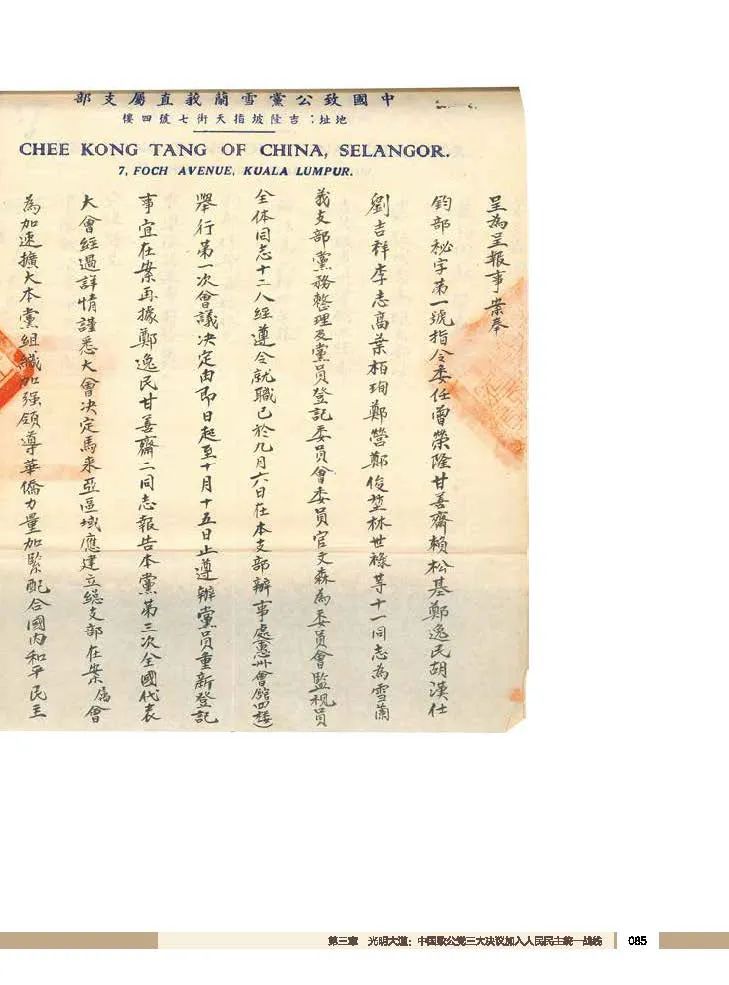 中國致公黨雪蘭莪直屬支部
地址：吉隆坡指天街七號四樓
CHEE KONG TANG OF CHINA, SELANGOR.
7, FOCH AVENUE, KUALA LUMPUR.
呈為呈報事案奉
鈞部秘字第一號指令委任曾榮隆甘善齋賴松基鄭逸民胡漢仕
劉吉祥李志高葉栢珣鄭營鄭俊林世祿等十一同志為雪蘭
莪支部黨務整理及黨員登記委員會委員官文森為委員會監視員
全体同志十二人經遵令就職已於九月六日在本支部辦事處(惠州會館四樓)
舉行第一次會議决定由即日起至十月十五日止遵辦黨員重新登記
事宜在案再據鄭逸民甘善齋二同志報告本黨第三次全國代表
大會經過詳情謹悉大會决定馬來亞區域應建立總支部在案屬會
為加速擴大本黨組織加强領導華僑力量加緊配合國内和平民主
第三章 光明大道：中国致公党三大决议加入人民民主统一战线
085